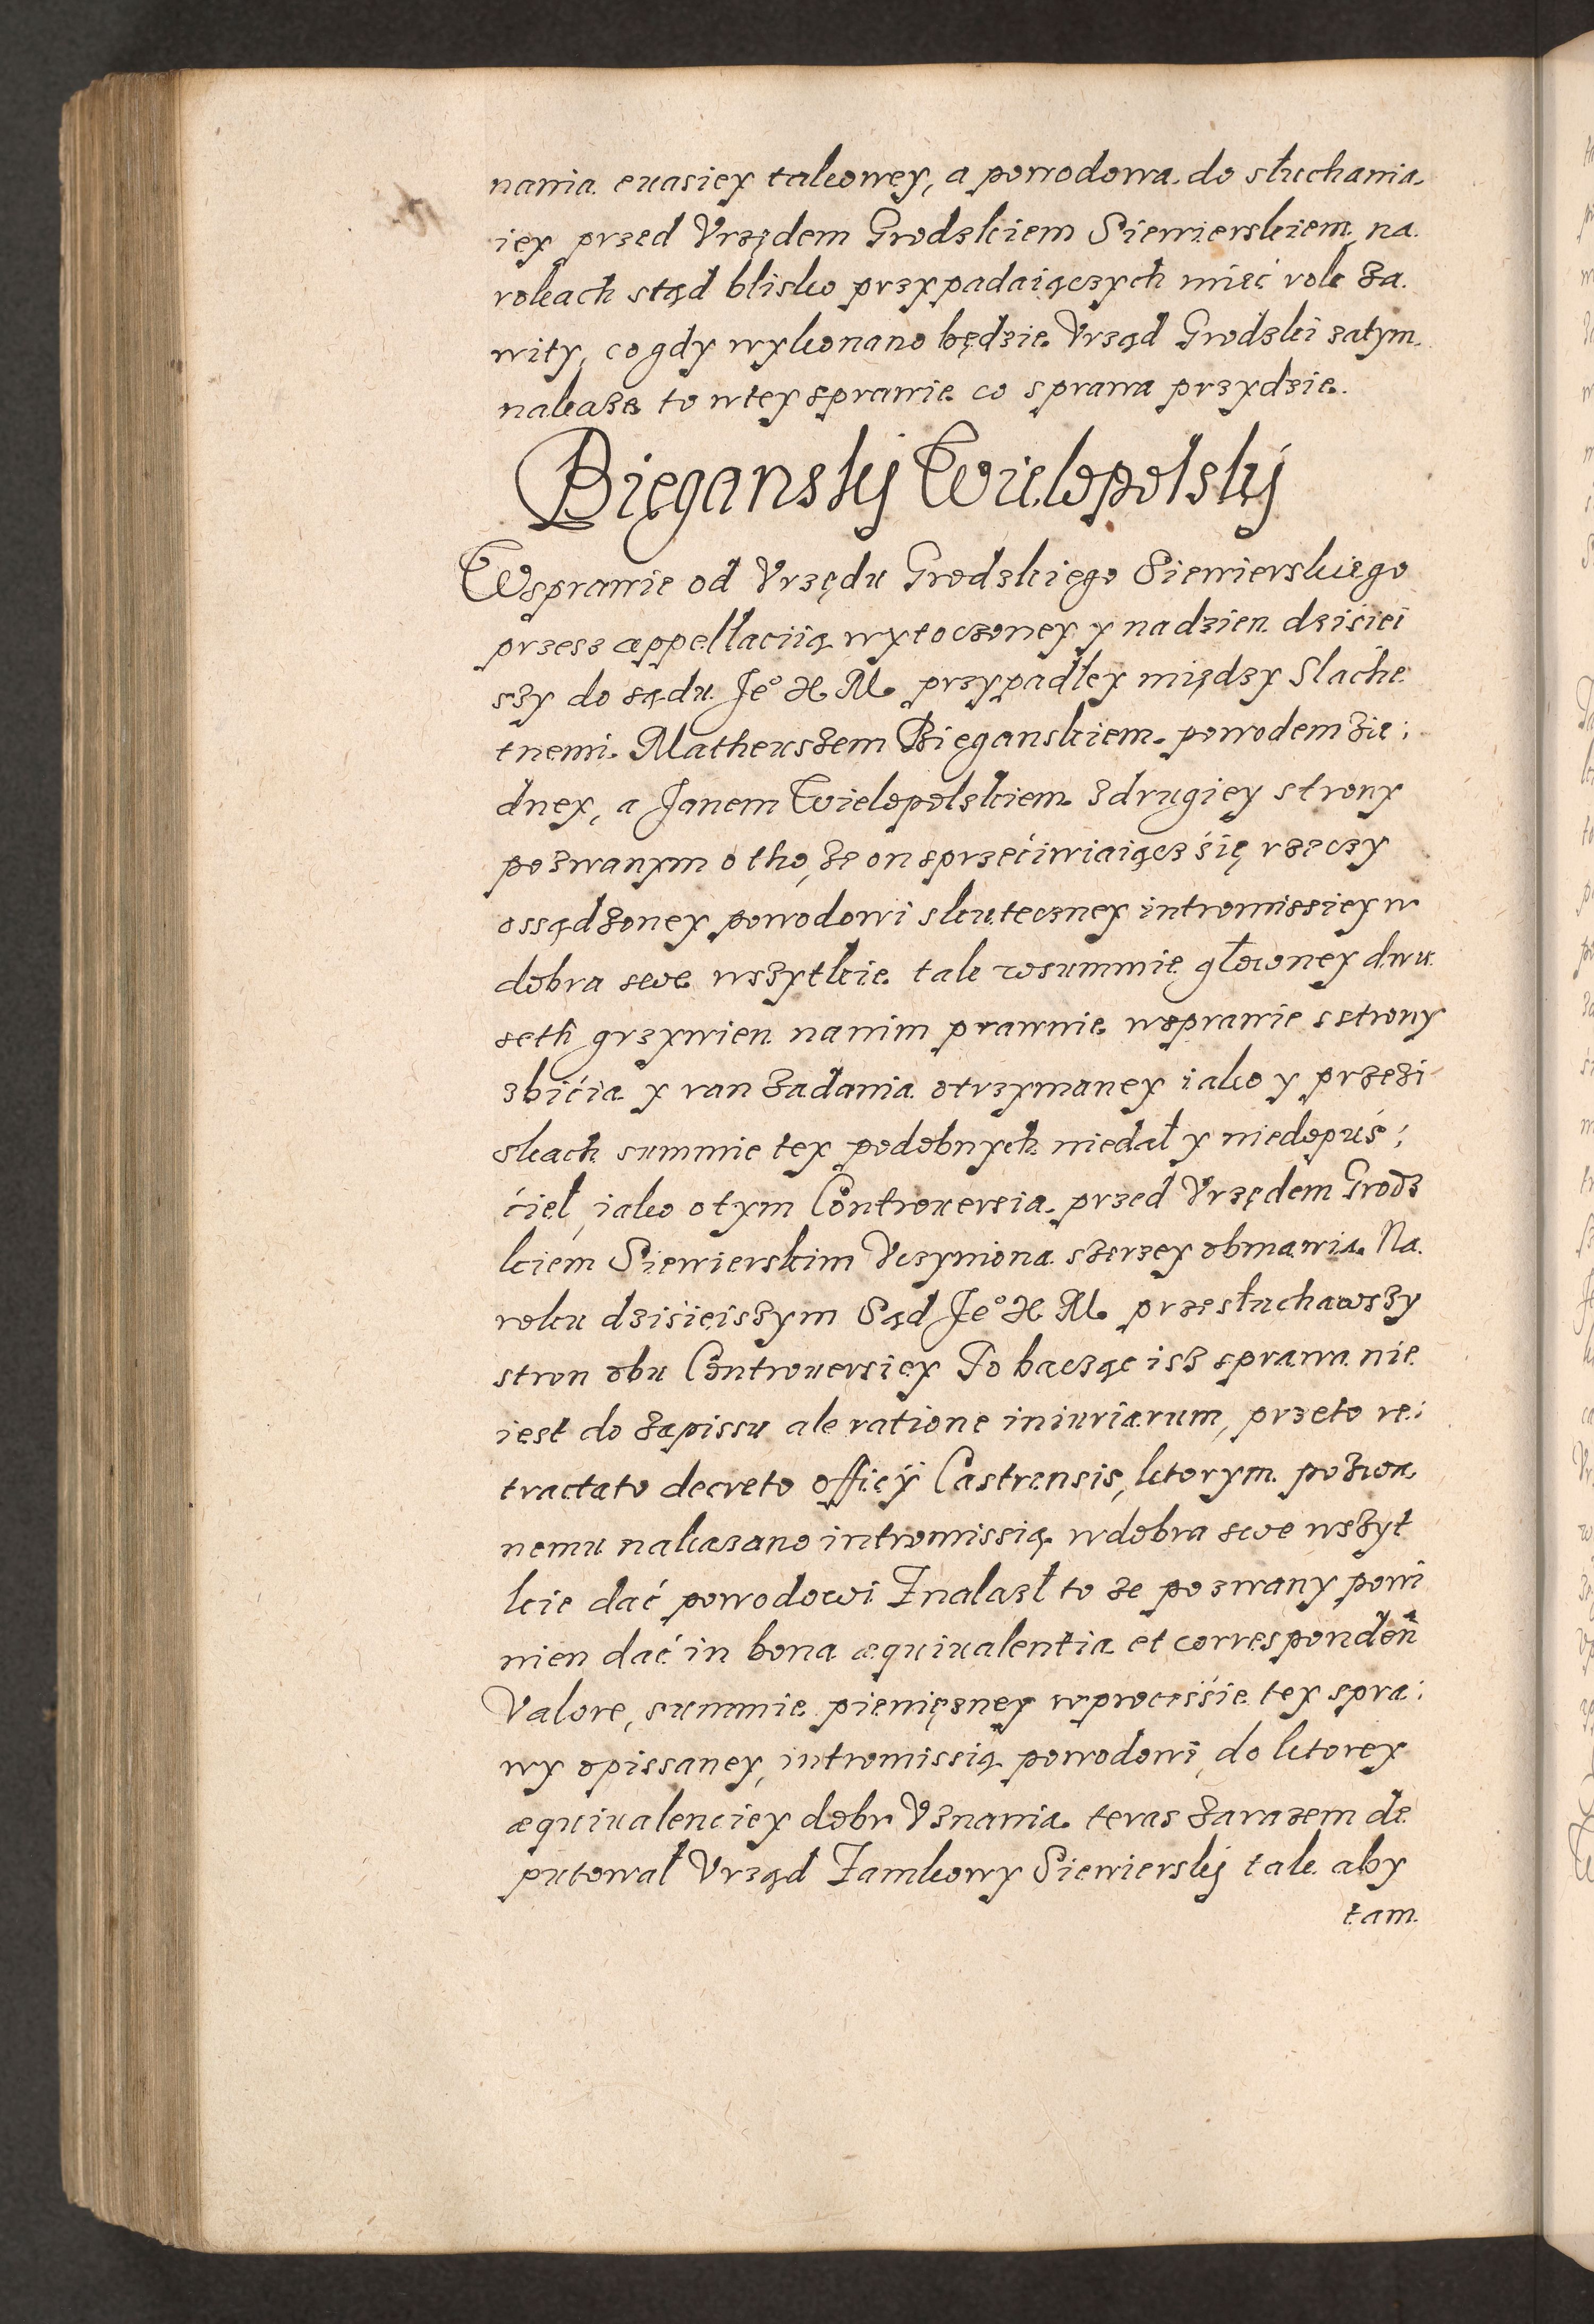 nania euasiey takowey, a powodowa do słuchania
iey przed Vrzędem Grodzkiem Siewierskiem, na
rokach stąd blisko przypadaiączych mieć rok za
wity, co gdy wykonano będzie Vrząd Grodzki zatym
nakaże to wtey sprawie co sprawa przydzie.
Bięganskij Wielopolskij
Wsprawie od Vrzędu Grodzkięgo Siewierskiego
przesz appellaciią wytoczoney y nadzien dzisiei
szy do sądu Je° X. M. przypadłey między Slache
tnemi Matheuszem Bięganskiem powodem zie:
dney, a Janem Wielopolskiem zdrugięy strony
pozwanym o tho, że on sprzećiwiaiącz się rzeczy
ossądzoney powodowi skuteczney intromissiey w
dobra swe wszytkie tak wsummie głowney dwu
seth grzywien nanim prawnie wsprawie sstrony
zbićia y ran zadania otrzymaney iako y przezi
skach summie tey podobnych niedał y niedopuś:
ćieł, iako otym Controuersia przed Vrzędem Grodz
kiem Siewierskim Vczyniona szerzey obmawia. Na
roku dzisieiszym Sąd Je° X. M. przesłuchawszy
stron obu Controuersiey To bacząc isz sprawa nie
iest do zapissu ale ratione iniuriarum, przeto re:
tractato decreto officÿ Castrensis, ktorym pozwa
nemu nakazano intromissią wdobra swe wszyt
kie dać powodowi Znalazł to że pozwany powi
nien dać in bona æquiualentia et corresponden
Valore, summie pienięzney wprocessie tey spra:
wy opissaney, intromissią powodowi, do ktorey
æquiualenciey dobr Vznania teras zarazem de
putował Vrząd Zamkowy Siewierskij tak aby
tam